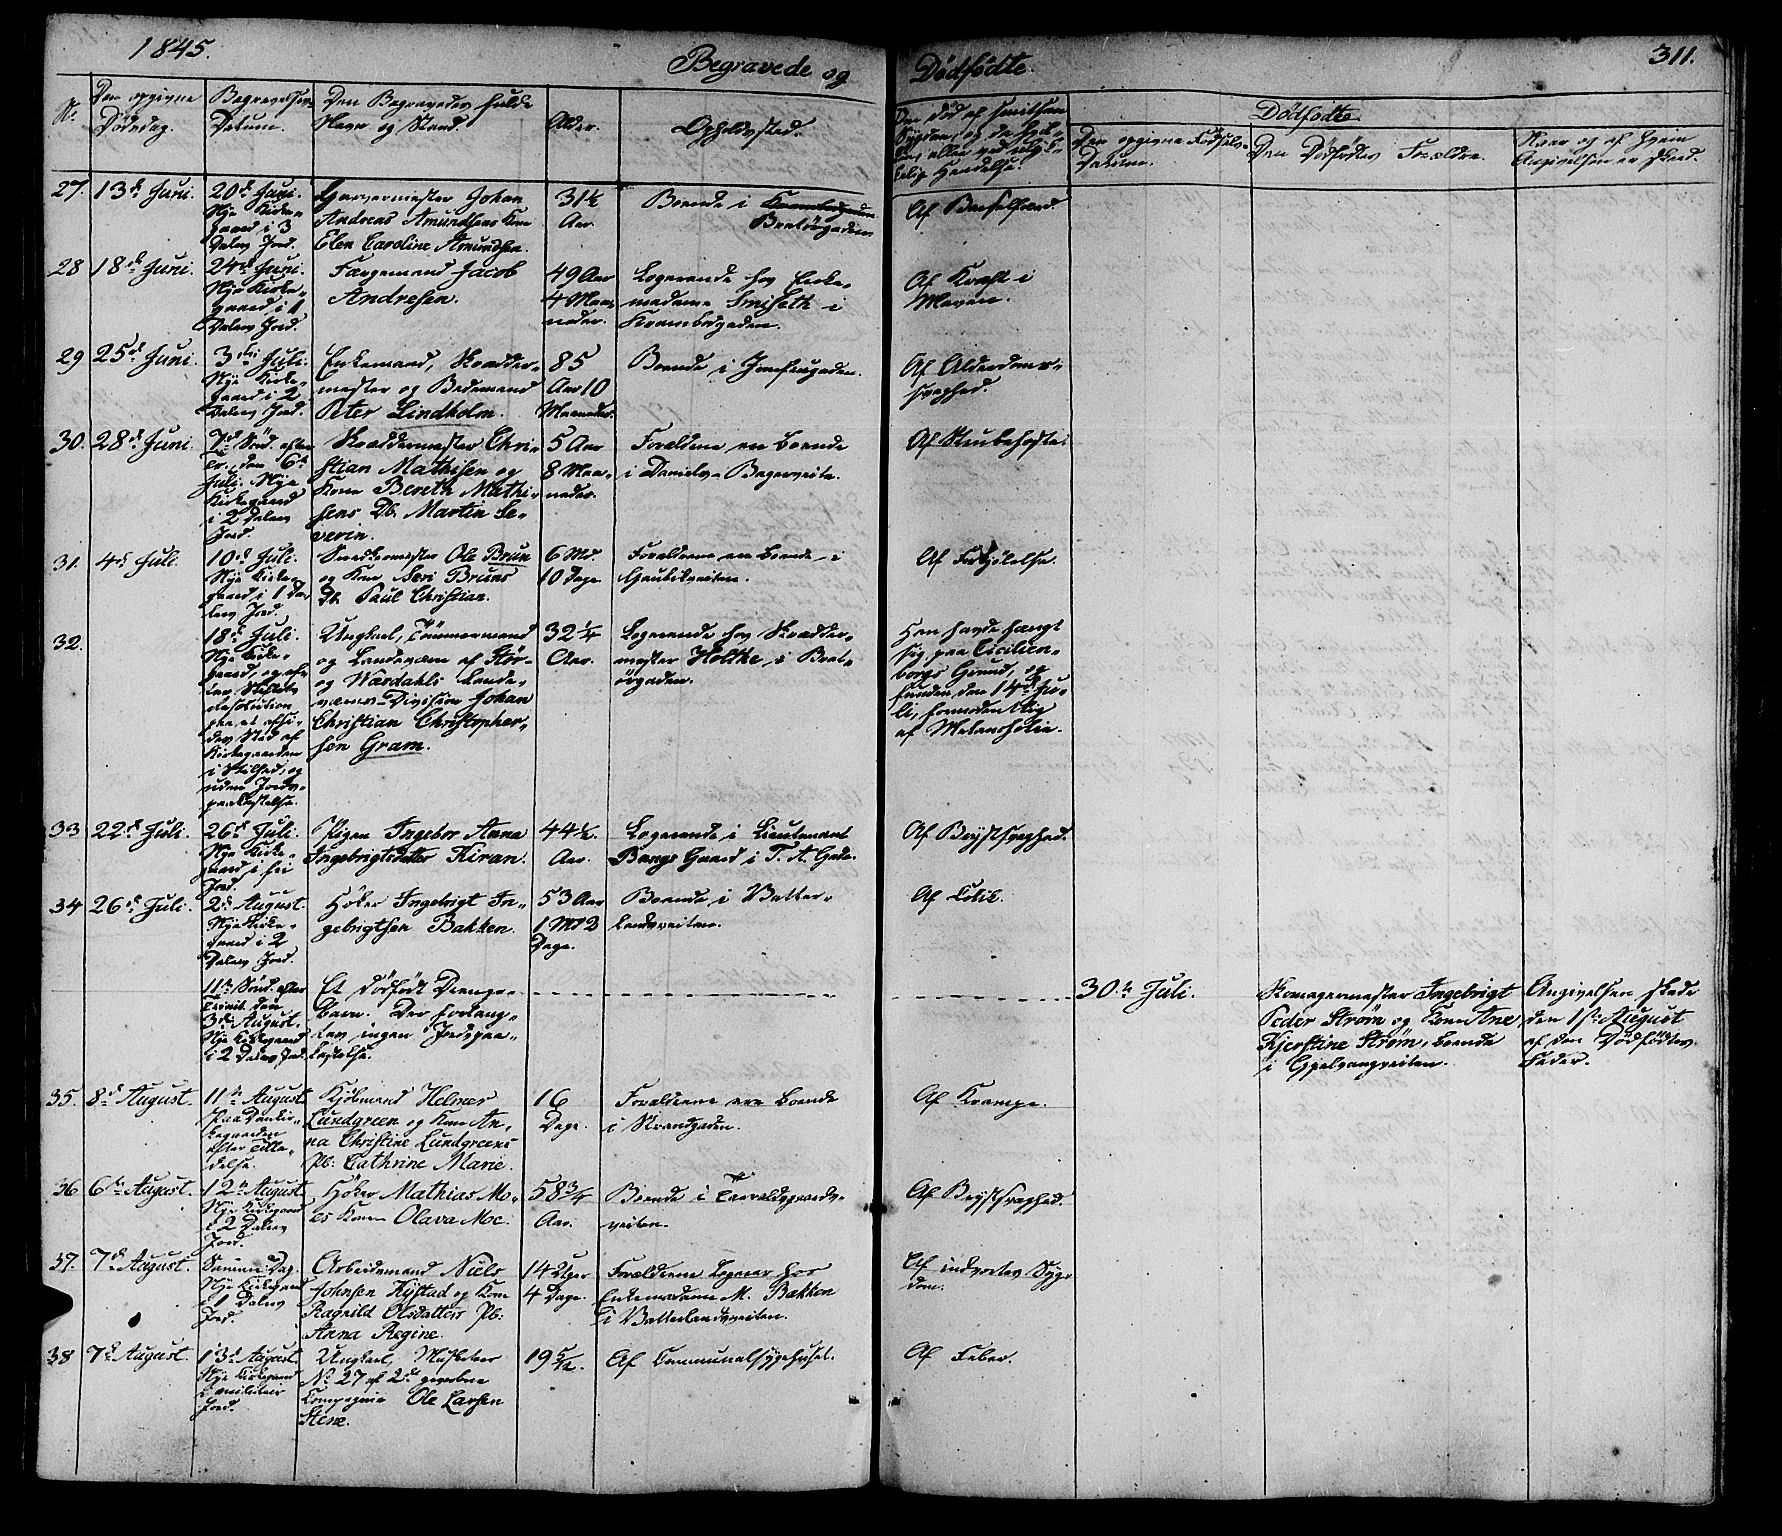 1845.
Begravede og
Dødfødte.
311.
No.
Den opgivne
Dødsdag.
Begravelses-
Datum.
Den Begravedes fulde
Navn og Stand.
Alder.
Opholdssted.
Dødfødte.
Den opgivne Fødsels-
Datum.
Den Dødfødtes Forældre.
Naar og af hvem
Angivelsen er skeed.
27.
13de Juni.
20de Juni.
Nye Kirke-
gaard i 3
Dalers Jord.
Garvermester Johan
Andreas Amundsens Kone
Elen Caroline Amundsen.
31½
Aar.
Boende i
Bratørgaden
Af Barselfeed.
28
18de Juni.
24de Juni.
Nye Kirke-
gaard i 1
Dalers Jord.
Farvemand Jacob
Andresen.
49 Aar
4 Maa-
neder.
Logerende hos Enke-
madame Smiseth i
Krambodgaden.
Af Kræft i
Maven.
29
25de Juni.
3die Juli.
Nye Kirke-
gaard i 2
Dalers Jord.
Enkemand, Skrædder-
mester og Bedemand
Peter Lindholm.
85
Aar 10
Maaneder.
Boende i Jomfrugaden.
Af Alderdoms-
svaghed.
30.
28de Juni
7de Sønd. efter
Tr., den 6te
Juli. Nye
Kirkegaard
i 2 Dalers
Jord.
Skræddermester Chri-
stian Mathisen og
Kone Bereth Mathi-
sens Db. Martin Se-
verin.
5 Aar
8 Maa-
neder.
Forældrene ere boende
i Daniels-Bagerveite.
Af Strubehoste.
31.
4de Juli.
10de Juli.
Nye Kirke-
gaard i 1 Da-
lers Jord.
Snedkermester Ole Brun
og Kone Seri Bruns
Db. Paul Christian.
6 Md
10 Dage
Forældrene ere boende i
Gaubekveiten.
Af Forkjølelse.
32.
18de Juli.
Nye Kirke-
gaard, og ef-
ter Stiftets
Resolution
paa et afsi-
des Sted af
Kirkegaarden
i Stilhed, og
uden Jords-
paakastelse.
Ungkarl, Tømmermand
og Landeværn af Stør-
og Værdahls Lande-
værns-Division Johan
Christian Christopher-
sen Gram.
32¼
Aar.
Logerende hos Skrædder-
mester Holtke, i Brat-
ørgaden.
Han havde hængt
sig paa Cicilien-
borgs Grund, og
funden den 14de Ju-
li, formodentlig
af Melancholie.
33
22de Juli.
26de Juli.
Nye Kirke-
gaard i fri
Jord.
Pigen Ingebor Anna
Ingebrigtsdatter Kiran.
44½.
Aar.
Logerende i Lieutenant
Bangs Gaard i T. A. Gade.
Af Brystsvaghed.
34
26de Juli.
2den August.
Nye Kirke-
gaard i 2
Dalers Jord.
Høker Ingebrigt In-
gebrigtsen Bakken.
53 Aar
1 Md 2
Dage.
Boende, i Vatter-
landsveiten.
Af Colik.
11te Sønd. efter
Trinit. den
3die August.
Nye Kirkegaard
i 2 Dalers Jord.
Et dødfødt Drenge-
Barn. Der forlang-
tes ingen Jordpaa-
kastelse.
30te Juli.
Skomagermester Ingebrigt
Peder Strøm og Kone Ane
Kjerstine Strøm, boende
i Eppelvangveiten.
Angivelsen skede
den 1ste August
af den Dødfødtes
Fader.
35.
8de August.
11te August
paa Domkir-
kegaarden
efter Tilla-
delse.
Kjøbmand Helmer
Lundgreen og Kone An-
na Christine Lundgreens
Pb: Cathrine Marie.
16
Dage.
Forældrene ere boende
i Strandgaden.
Af Krampe.
36
6te August.
12te August
Nye Kirkegaard
i 2 Dalers
Jord.
Høker Mathias Mo-
es Kone Olava Moe.
58¾
Aar.
Boende i Tarraldsgaards-
veiten.
Af Brystsvaghed.
37.
7de August.
Samme Dag.
Nye Kirkegaard
i 1 Dalers
Jord.
Arbeidsmand Niels
Johnsen Kystad og Kone
Ragnild Olsdatters Pb:
Anna Regine.
14 Uger
4 Dage.
Forældrene logerer hos
Enkemadame M. Bakken
i Vatterlandsveiten.
Af indvortes Syg-
dom.
38
7de August.
13de August.
Nye Kirkegaard
i militær
Jord.
Ungkarl, Musketeer
No 27 af 2det gevorbne
Compagnie Ole Larsen
Stene.
19 5/12.
Af Communalsygehuset.
Af Feber.